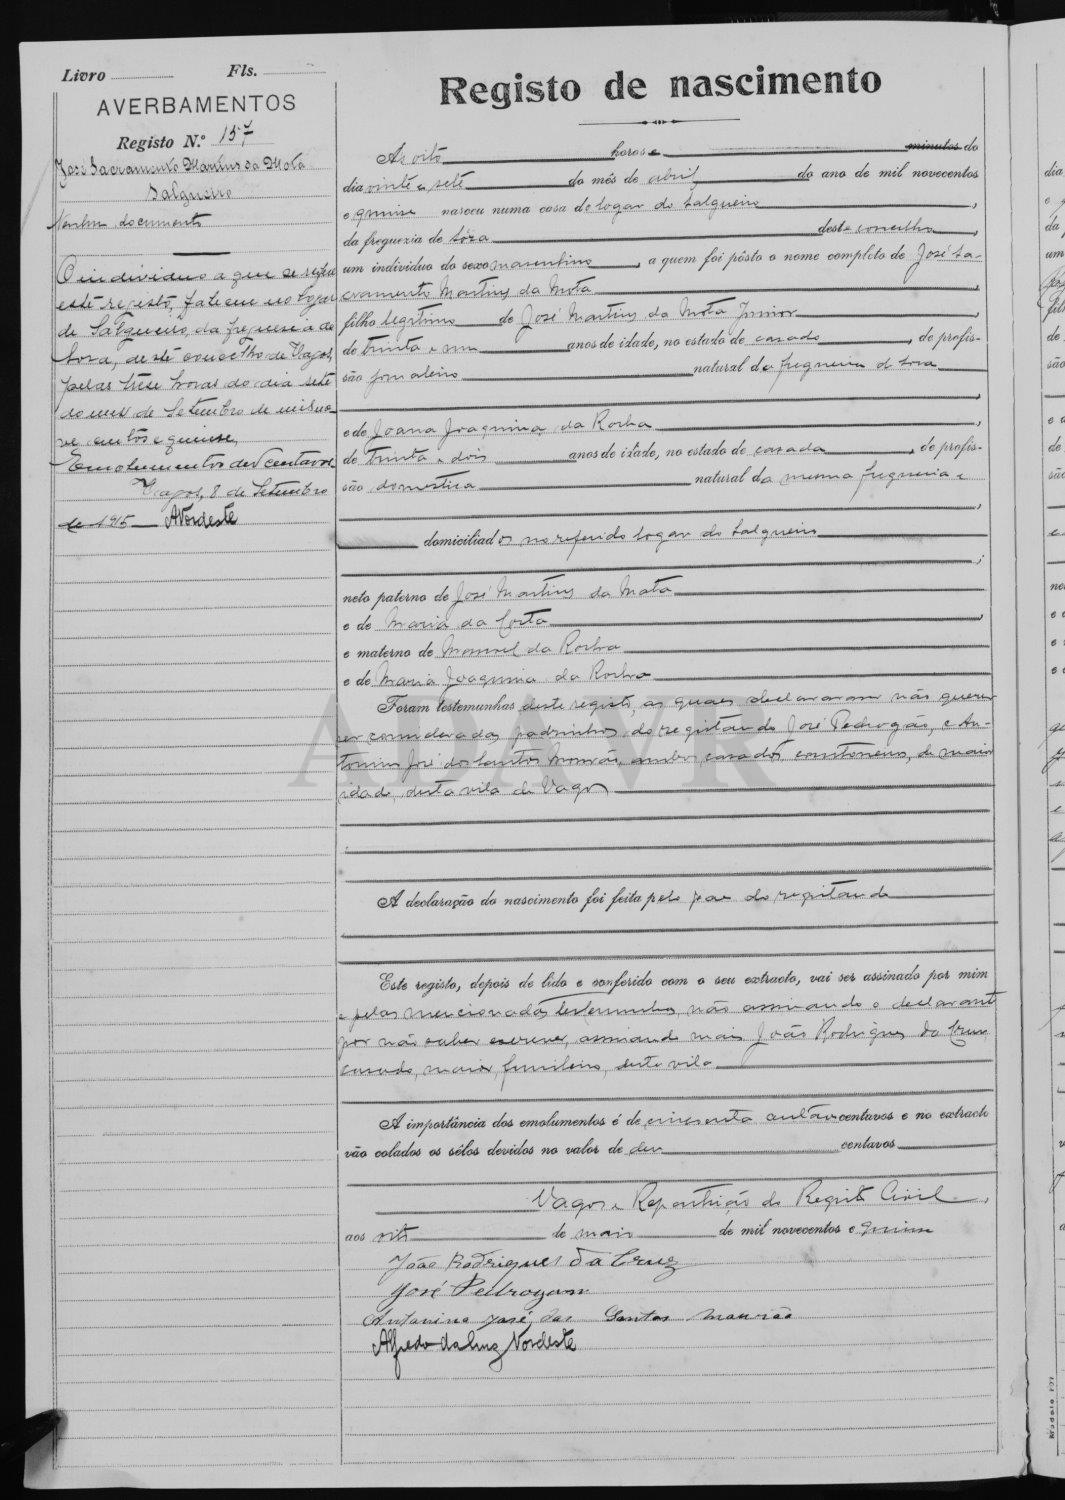 Livro Fls.
AVERBAMENTOS
Registo N.º 157
José Sacramento Martins da Mota
Salgueiro
Nenhum documento
O individuo a que se refere
este registo, faleceu no logar
de Salgueiro, da freguesia de
Sosa, deste concelho de Vagos,
pelas trese horas do dia sete
do mes de Setembro de mil no-
ve centos e quinse,
Emolumentos dez centavos
Vagos, 8 de Setembro
de 1915 ANordeste
Registo de nascimento
As oito horas e minutos do
dia vinte e sete do mês de abril do ano de mil novecentos
e quinse nasceu numa casa do logar do Salgueiro,
da freguezia de Sôza deste concelho,
um individuo do sexo masculino, a quem foi pôsto o nome completo de José Sa-
cramento Martins da Mota
filho legitimo de José Martins da Mota Junior,
de trinta e um anos de idade, no estado de casado, de profis-
são jornaleiro natural da freguesia de Soza
e de Joana Joaquina da Rocha
de trinta e dois anos de idade, no estado de casada, de profis-
são domestica natural da mesma freguesia e
domiciliados no referido logar do Salgueiro
;
neto paterno de José Martins da Mota
e de Maria da Costa,
e materno de Manuel da Rocha
e de Maria Joaquina da Rocha
Foram testemunhas deste registo, as quaes declararam não querer
ser considerados padrinhos do registando José Pedrogão, e An-
tonino José dos Santos Mourão, ambos casados, de maior
idade, desta vila de Vagos
A declaração do nascimento foi feita pelo pae do registando
Este registo, depois de lido e conferido com o seu extracto, vai ser assinado por mim
e pelas mencionadas testemunhas, não assinando o declarante
por não saber escrever, assinando mais João Rodrigues da Cruz,
casado, maior, funileiro, desta vila
A importância dos emolumentos é de cincoenta centavos e no extracto
vão colados os sêlos devidos no valor de dez centavos
Vagos e Repartição do Registo Civil,
aos oito de maio de mil novecentos e quinse
João Rodrigues da Cruz
José Pedrogam
Antonino José dos Santos Mourão
Alfredo da Luz Nordeste
ADAVR